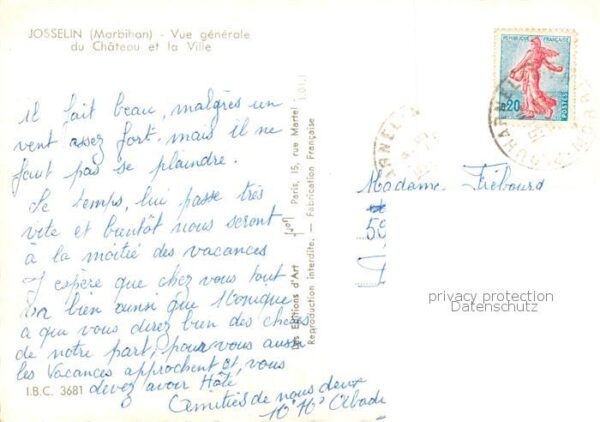 JOSSELIN (Morbihan) - Vue générale
du Château et la Ville
il fait beau, malgrès un
vent assez fort. mais il ne
faut pas se plaindre.
Le temps, lui passe très
vite et bientôt nous seront
à la moitié des vacances
J espère que chez vous tout
va bien ainsi que Monique
a qui vous direz bien des choses
de notre part, pour vous aussi
les vacances approchent et vous
devez avoir Hâte
Amitiés de nous deux
I.B.C. 3681
Les Editions d'Art Paris, 15, rue Martel
Reproduction interdite. — Fabrication Française
REPUBLIQUE FRANÇAISE
0,20
POSTES
Madame
59
privacy protection
Datenschutz